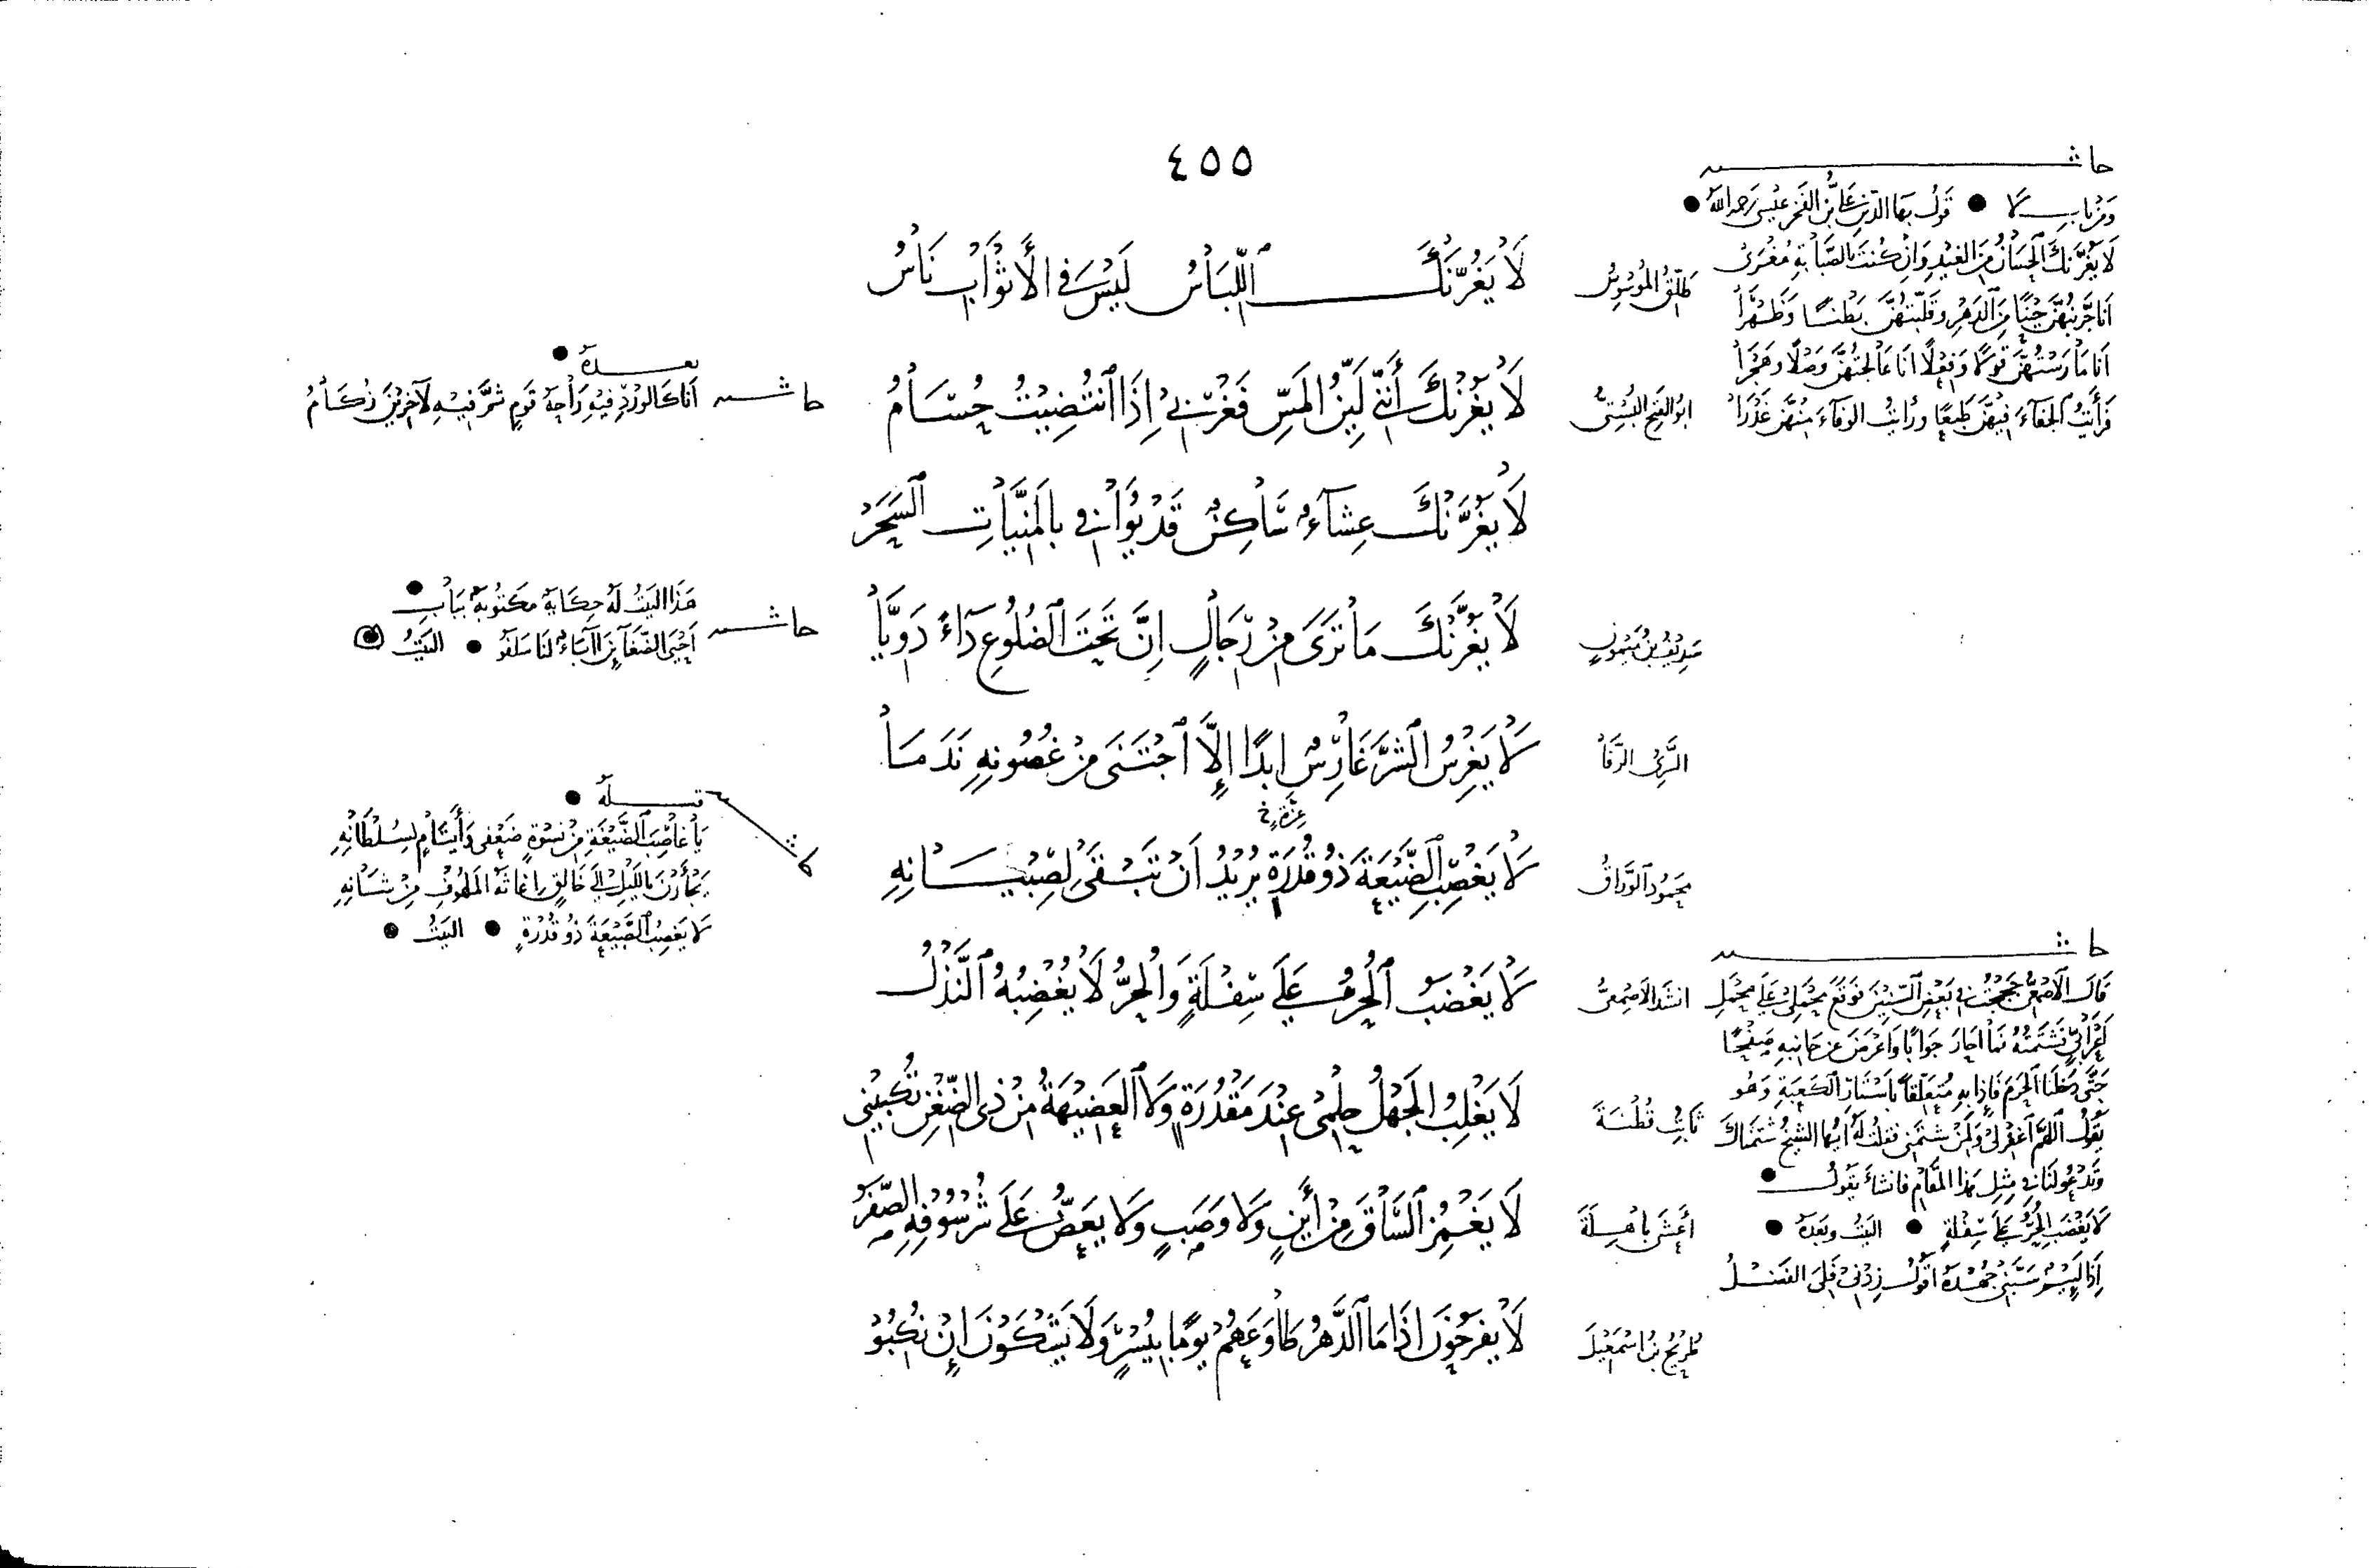 ٤٥٥
حاشية
ومن باب لا • قول بهاء الدين علي بن الفخر عيسى رحمه الله •
لَا يَغُرَّنَّكَ الْحِسَانُ مِنَ الْغِيدِ وَإِنْ كُنْتَ بِالصَّبَابَةِ مُغْرَى
أَنَا جَرَّبْتُهُنَّ حِينًا مِنَ الدَّهْرِ وَقَلَّبْتُهُنَّ بَطْنًا وَظَهْرًا
أَنَا مَارَسْتُهُنَّ قَوْلًا وَفِعْلًا أَنَا عَالَجْتُهُنَّ وَصْلًا وَهَجْرًا
فَرَأَيْتُ الْجَفَاءَ فِيهِنَّ طَبْعًا وَرَأَيْتُ الْوَفَاءَ مِنْهُنَّ غَدْرًا
لَا يَغُرَّنَّكَ اللِّبَاسُ لَيْسَ فِي الْأَثْوَابِ نَاسُ
الموسوس
لَا يَغُرَّنْكَ أَنَّنِي لَيِّنُ الْمَسِّ فَغَرْبِي إِذَا انْتُضِيتُ حُسَامُ
ابو الفتح البستي
حاشية
بعده •
أَنَا كَالْوَرْدِ فِيهِ رَاحَةُ قَوْمٍ ثُمَّ فِيهِ لِآخَرِينَ زُكَامُ
لَا يَغُرَّنْكَ عِشَاءٌ سَاكِنٌ قَدْ يُوَافِي بِالْمَنِيَّاتِ السَّحَرْ
لَا يَغُرَّنْكَ مَا تَرَى مِنْ رِجَالٍ إِنَّ تَحْتَ الضُّلُوعِ دَاءً دَوِيًّا
سديف بن ميمون
حاشية
هذا البيت له حكاية مكتوبة بباب •
أحيى الضغاين آباء لنا سلفوا • البيت
لَا يَغْرِسُ الشَّرَّ غَارِسٌ أَبَدًا إِلَّا اجْتَنَى مِنْ غُصُونِهِ نَدَمَا
السري الرفا
لَا يَغْصِبِ الضَّيْعَةَ ذُو قُدْرَةٍ يُرِيدُ أَنْ تَبْقَى لِصِبْيَانِهِ
عزة خ
محمود الوراق
قبله •
يَا غَاصِبَ الضَّيْعَةِ مِنْ نِسْوَةٍ ضَعْفَى وَأَيْتَامٍ بِسُلْطَانِهِ
يَجْأَرْنَ بِاللَّيْلِ إِلَى خَالِقٍ إِغَاثَةُ الْمَلْهُوفِ مِنْ شَانِهِ
لَا يَغْصِبِ الضَّيْعَةَ ذُو قُدْرَةٍ • البيت •
لَا يَغْضَبُ الْحُرُّ عَلَى سِفْلَةٍ وَالْحُرُّ لَا يُغْضِبُهُ النَّذْلُ
انشد الأصمعي
حاشية
قال الأصمعي حججت في بعض السنين فوقع محملي على محمل
أعرابي فشتمته فما أحار جوابا وأعرض عن جانبه صفحا
حتى دخلنا الحرم فإذا به متعلقا بأستار الكعبة وهو
يقول اللهم اغفر لي ولمن شتمني فقلت له أيها الشيخ شتماك
وتدعو لنا في مثل هذا المقام فأنشأ يقول •
لا يغضب الحر على سفلة • البيت وبعده •
إِذَا لَئِيمٌ سَبَّنِي جُهْدَهُ أَقُولُ زِدْنِي فَلِيَ الْفَضْلُ
لَا يَغْلِبُ الْجَهْلُ حِلْمِي عِنْدَ مَقْدُرَةٍ وَلَا الْعَضِيهَةُ مِنْ ذِي الضِّغْنِ تُكْبِينِي
ثابت قطنة
لَا يَغْمِزُ السَّاقَ مِنْ أَيْنٍ وَلَا وَصَبٍ وَلَا يَعَضُّ عَلَى شُرْسُوفِهِ الصَّفَرُ
أعشى باهلة
لَا يَفْرَحُونَ إِذَا مَا الدَّهْرُ طَاوَعَهُمْ يَوْمًا بِيُسْرٍ وَلَا يَشْكُونَ إِنْ نُكِبُوا
طريح بن اسمعيل